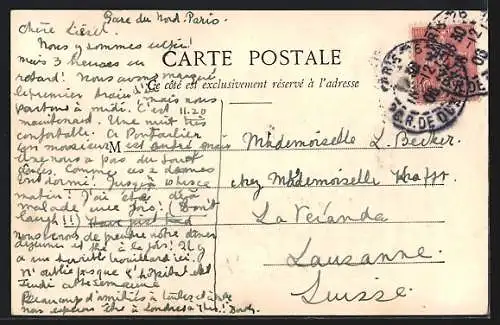 Gare du Nord. Paris.
Chère Lierel.
Nous y sommes enfin!
mais 3 heures en
retard! Nous avons manqué
le premier train
mais nous
partons à midi. C'est 11.20
maintenant. Une nuit très
confortable. A Pontarlier
un monsieur est entré mais
nous n'a pas du tout
Comme ces 2 dames
ont dormi! Jusqu'à 10 hrs ce
matin! J'ai été déjà
malade une fois! (Don't
laugh!!) Have just had
nous venons de prendre notre
déjeuner et thé à la fois! Il y
a un horrible brouillard ici.
N'oublie pas que l'hôpital est
Jeudi cette semaine
Beaucoup d'amitiés à toutes
nous espérons être à Londres à
CARTE POSTALE
Ce côté est exclusivement réservé à l'adresse
M
Mademoiselle L. Becker.
chez Mademoiselle Krafft.
La Veranda
Lausanne.
Suisse.
PARIS
GARE DU